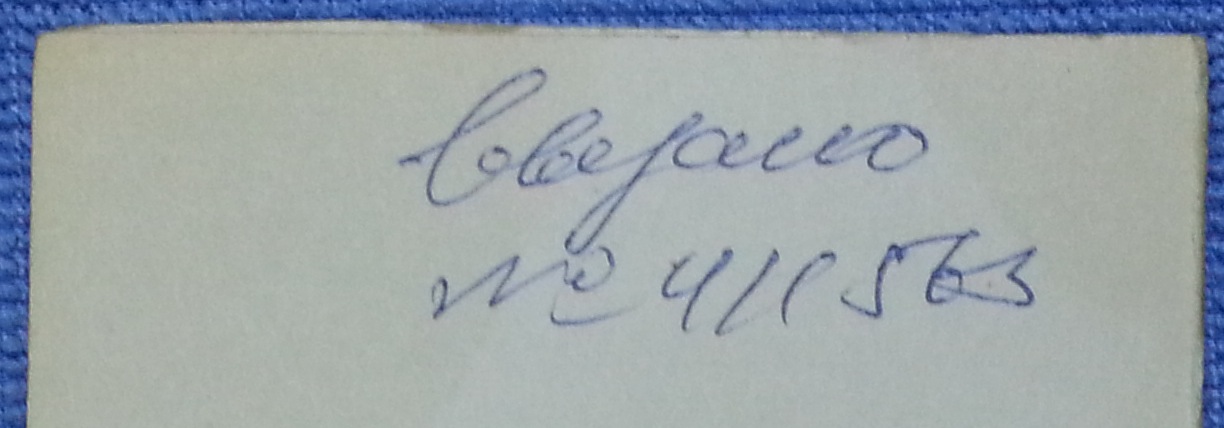 Связано
№ 411563